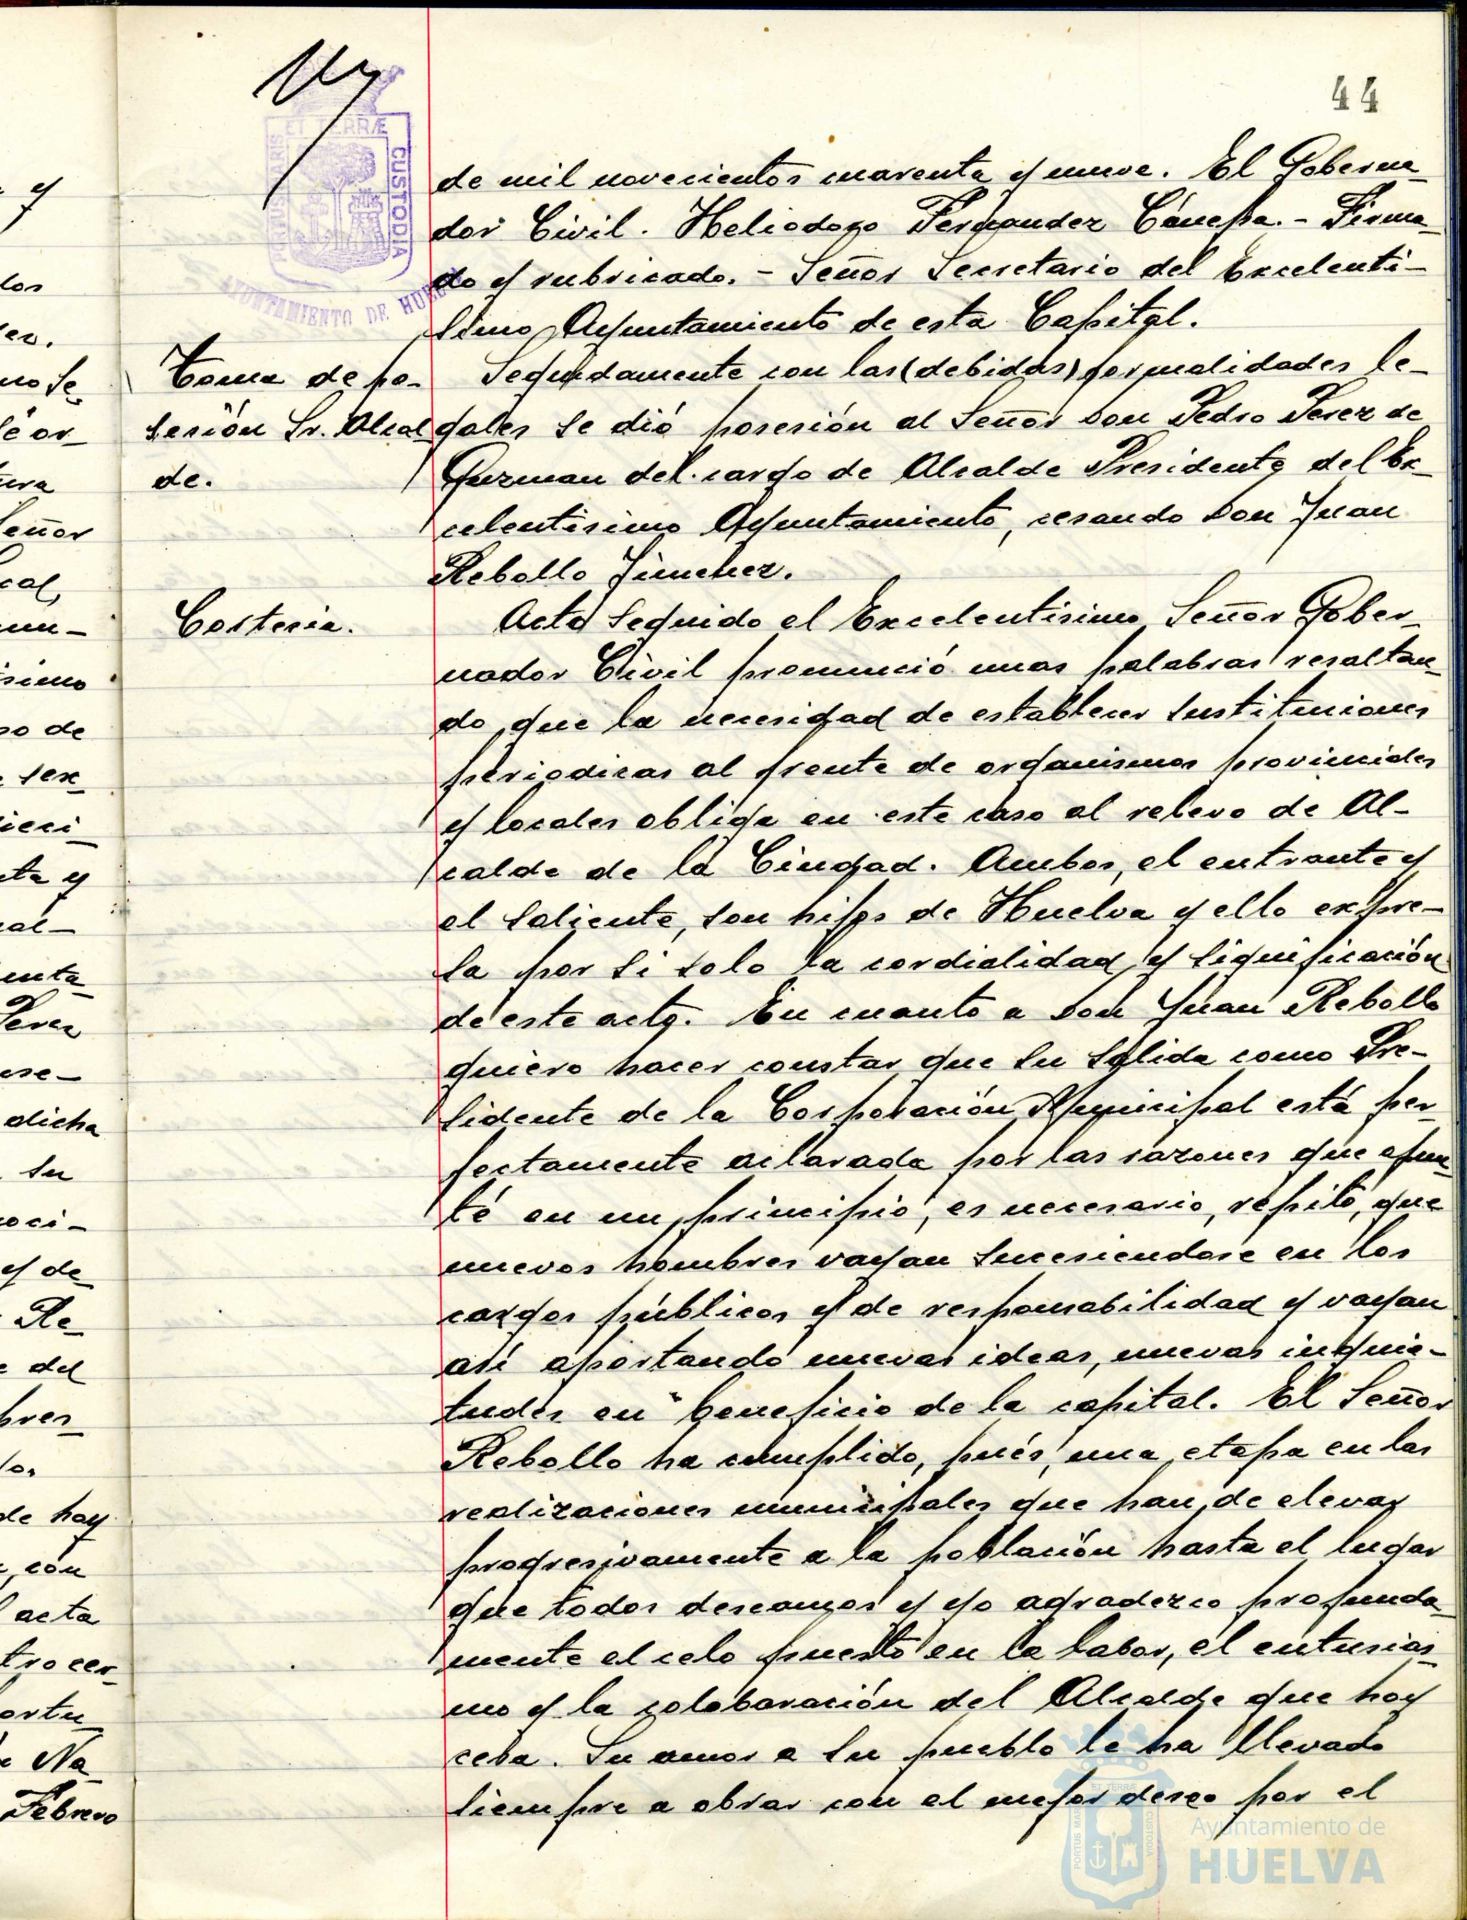 44
PORTUS MARIS ET TERRÆ CUSTODIA
AYUNTAMIENTO DE HUELVA
de mil novecientos cuarenta y nueve. El Goberna-
dor Civil. Heliodoro Fernandez Cánepa. - Firma-
do y rubricado. - Señor Secretario del Excelenti-
simo Ayuntamiento de esta Capital.
Toma de po-
sesión Sr. Alcal
de.
Seguidamente con las (debidas) formalidades le-
gales se dió posesión al Señor Don Pedro Perez de
Guzman del cargo de Alcalde Presidente del Ex-
celentisimo Ayuntamiento, cesando Don Juan
Rebollo Jimenez.
Cortesia.
Acto seguido el Excelentisimo Señor Gober-
nador Civil pronunció unas palabras resaltan-
do que la necesidad de establecer sustituciones
periodicas al frente de organismos provinciales
y locales obliga en este caso al relevo de Al-
calde de la Ciudad. Ambos, el entrante y
el saliente, son hijos de Huelva y ello expre-
sa por si solo la cordialidad y significación
de este acto. En cuanto a Don Juan Rebollo
quiero hacer constar que su salida como Pre-
sidente de la Corporación Municipal está per-
fectamente aclarada por las razones que apun-
té en un principio, es necesario, repito, que
nuevos hombres vayan sucesiendose en los
cargos públicos y de responsabilidad y vayan
así aportando nuevas ideas, nuevas inquie-
tudes en beneficio de la capital. El Señor
Rebollo ha cumplido, pués, una etapa en las
realizaciones municipales que han de elevar
progresivamente a la población hasta el lugar
que todos deseamos y yo agradezco profunda-
mente el celo puesto en la labor, el entusias-
mo y la colaboración del Alcalde que hoy
cesa. Su amor a su pueblo le ha llevado
siempre a obrar con el mejor deseo por el
Ayuntamiento de
HUELVA